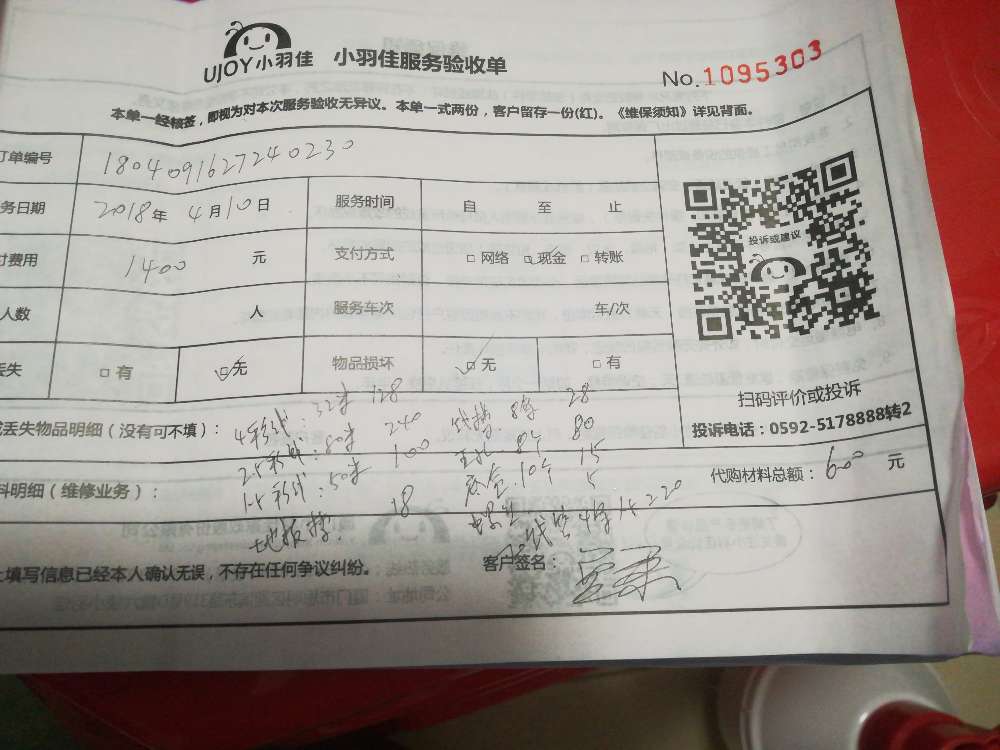 UJOY小羽佳 小羽佳服务验收单
No.1095303
本单一经核签，即视为对本次服务验收无异议。本单一式两份，客户留存一份(红)。《维保须知》详见背面。
订单编号 1804091627240230
务日期 2018年 4月10日 服务时间 自 至 止
付费用 1400 元 支付方式 □网络 □现金 □转账
人数 人 服务车次 车/次
丢失 □有 □无 物品损坏 □无 □有
投诉或建议
扫码评价或投诉
投诉电话：0592-5178888转2
4平线：32米 128 线 28
或丢失物品明细（没有可不填）：
2.5平线：80米 240 8个 80
1.5平线：50米 100 底盒.10个 15
料明细（维修业务）： 代购材料总额：600 元
地板 18 5
线管
上填写信息已经本人确认无误，不存在任何争议纠纷。 客户签名：